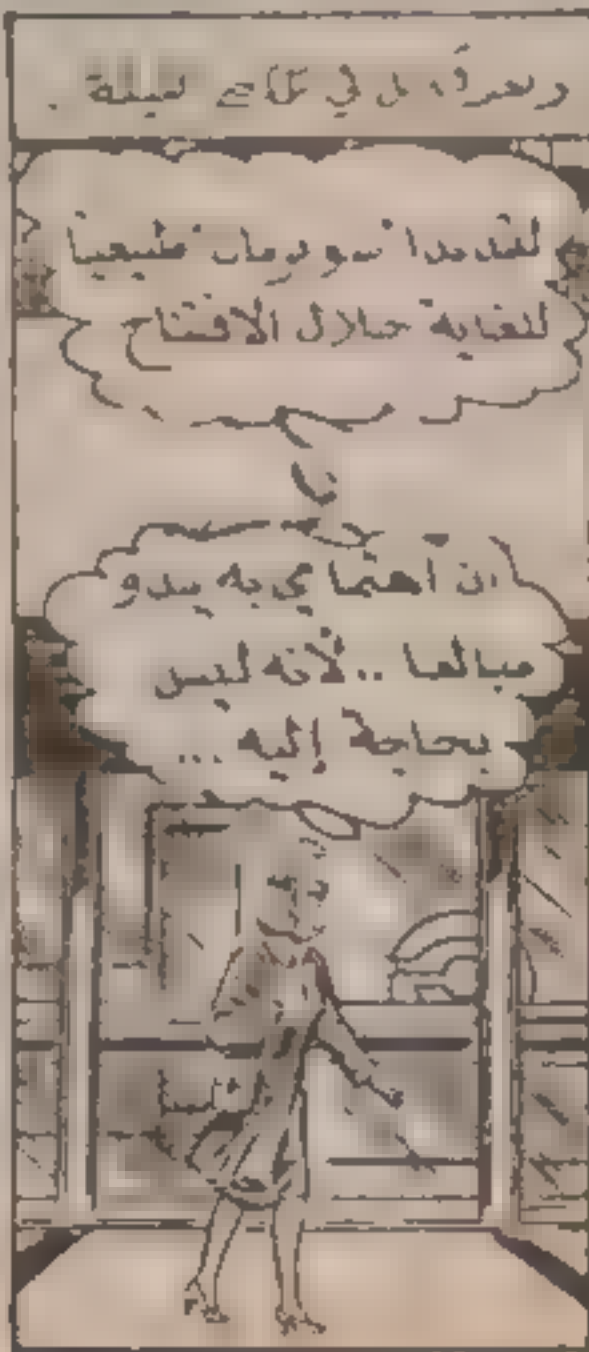 لقد بدا سوبرمان طبيعياً
للغاية خلال الافتتاح
ان اهتمامي به يبدو
مبالغا .. لأنه ليس
بحاجة إليه ...